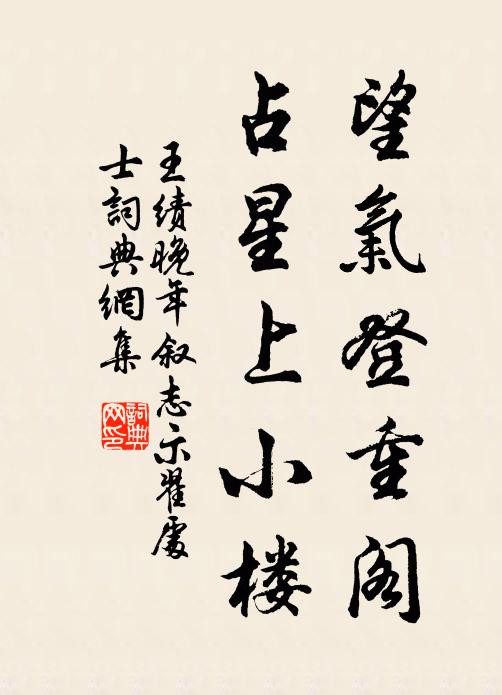 望氣登重阁
占星上小楼
王绩晚年叙志示翟處
士詞典網集
詞典
网印